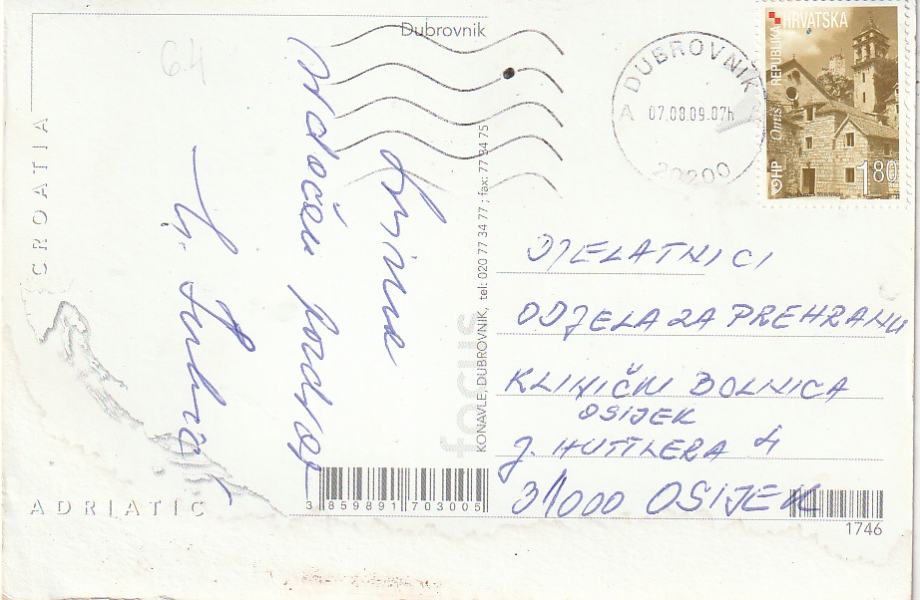 Dubrovnik
64
CROATIA
ADRIATIC
Srdačan pozdrav
svima
focus
KONAVLE, DUBROVNIK, tel: 020 77 34 77 ; fax: 77 34 75
3 859891 703005
DUBROVNIK
A A
07.08.09.07h
20200
REPUBLIKA HRVATSKA
Omiš
HP
1.80
DJELATNICI
ODJELA ZA PREHRANU
KLINIČKI BOLNICA
OSIJEK
J. HUTTLERA 4
31000 OSIJEK
1746